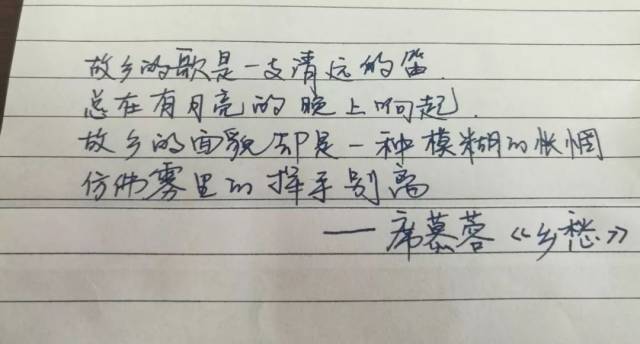 故乡的歌是一支清远的笛.
总在有月亮的晚上响起.
故乡的面貌却是一种模糊的怅惘
仿佛雾里的挥手别离
——席慕蓉《乡愁》